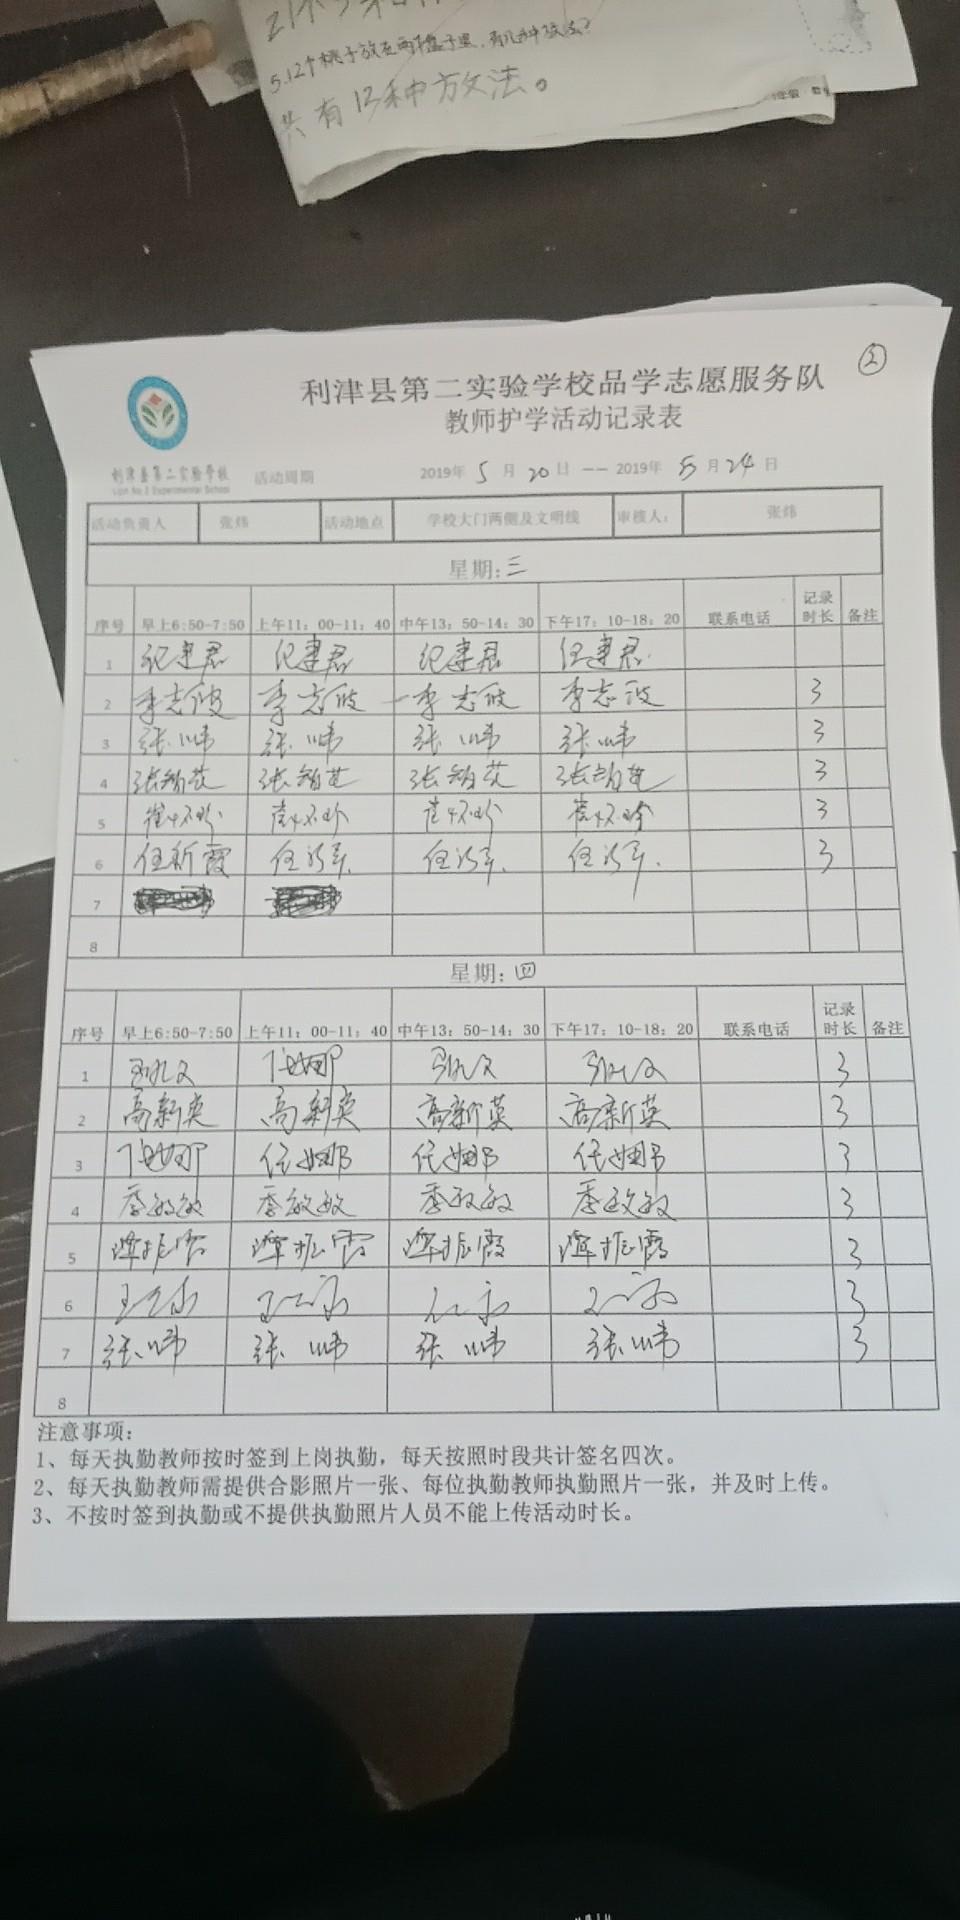 5.12个桃子放在两个盒子里，有几种放法？
共有13种方法。
②
利津县第二实验学校品学志愿服务队
教师护学活动记录表
利津县第二实验学校
Lijin No.2 Experimental School
活动周期 2019年 5 月 20 日 —— 2019年 5 月 24 日
活动负责人 张炜 活动地点 学校大门两侧及文明线 审核人： 张炜
星期：三
序号 早上6:50-7:50 上午11：00-11：40 中午13：50-14：30 下午17：10-18：20 联系电话 记录时长 备注
1 纪建君 纪建君 纪建君 任建君
2 李志波 李志波 李志波 李志波 3
3 张炜 张炜 张炜 张炜 3
4 张智芝 张智芝 张智芝 张智芝 3
5 3
6 任新霞 3
7
8
星期：四
序号 早上6:50-7:50 上午11：00-11：40 中午13：50-14：30 下午17：10-18：20 联系电话 记录时长 备注
1 3
2 高新英 高新英 高新英 高新英 3
3 任娜 任娜 任娜 任娜 3
4 季敏敏 季敏敏 季敏敏 季敏敏 3
5 3
6 3
7 张炜 张炜 张炜 张炜 3
8
注意事项：
1、每天执勤教师按时签到上岗执勤，每天按照时段共计签名四次。
2、每天执勤教师需提供合影照片一张、每位执勤教师执勤照片一张，并及时上传。
3、不按时签到执勤或不提供执勤照片人员不能上传活动时长。